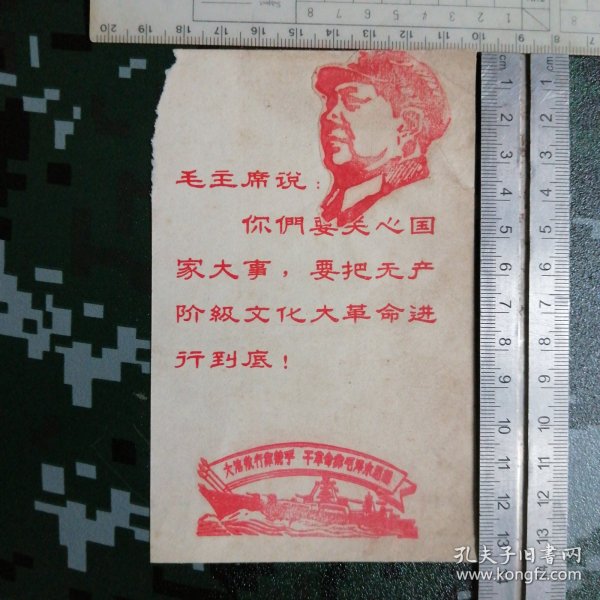 毛主席说：
你們要关心国
家大事，要把无产
阶级文化大革命进
行到底！
大海航行靠舵手 干革命靠毛泽东思想
孔夫子旧书网
www.kongfz.com